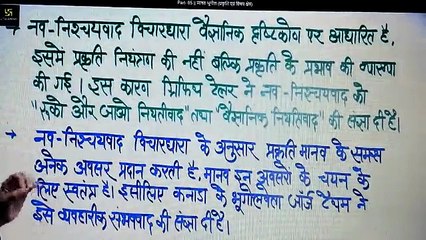 Part 05 || मानव भूगोल (प्रकृति एवं विषय क्षेत्र)
→ नव-निश्चयवाद विचारधारा वैज्ञानिक दृष्टिकोण पर आधारित है,
इसमें प्रकृति नियंत्रण की नहीं बल्कि प्रकृति के प्रभाव की व्याख्या
की गई । इस कारण ग्रिफिथ टेलर ने नव-निश्चयवाद को
"रूको और जाओ नियतीवाद" तथा "वैज्ञानिक नियतिवाद" की संज्ञा दी है।
→ नव-निश्चयवाद विचारधारा के अनुसार प्रकृति मानव के समक्ष
अनेक अवसर प्रदान करती है, मानव इन अवसरो के चयन के
लिए स्वतंत्र है। इसीलिए कनाडा के भूगोलवेत्ता जॉर्ज टैथम ने
इसे व्यवहारीक संभववाद की संज्ञा दी है।